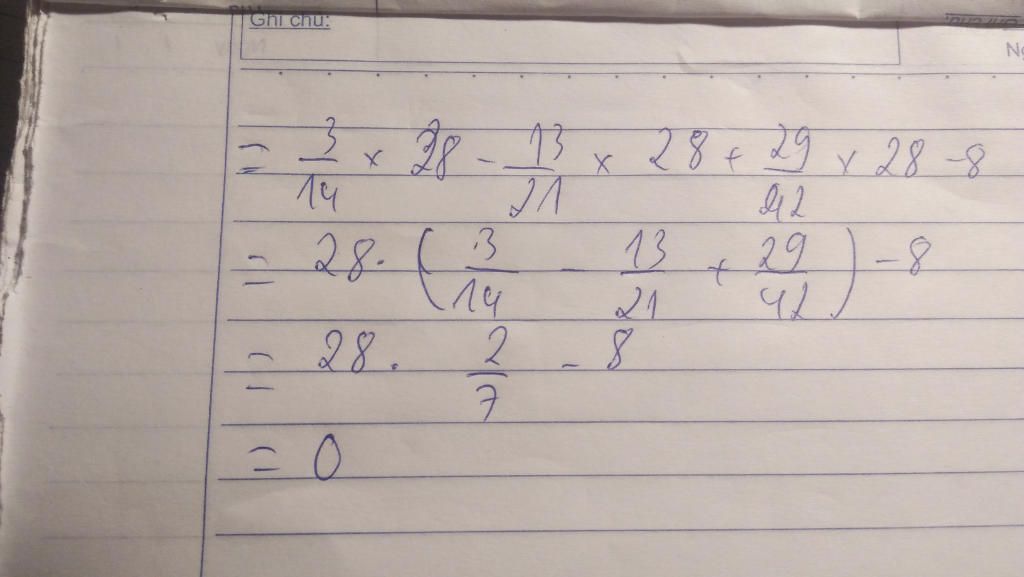 Ghi chú:
= 3/14 × 28 - 13/21 × 28 + 29/42 × 28 - 8
= 28 . ( 3/14 - 13/21 + 29/42 ) - 8
= 28 . 2/7 - 8
= 0